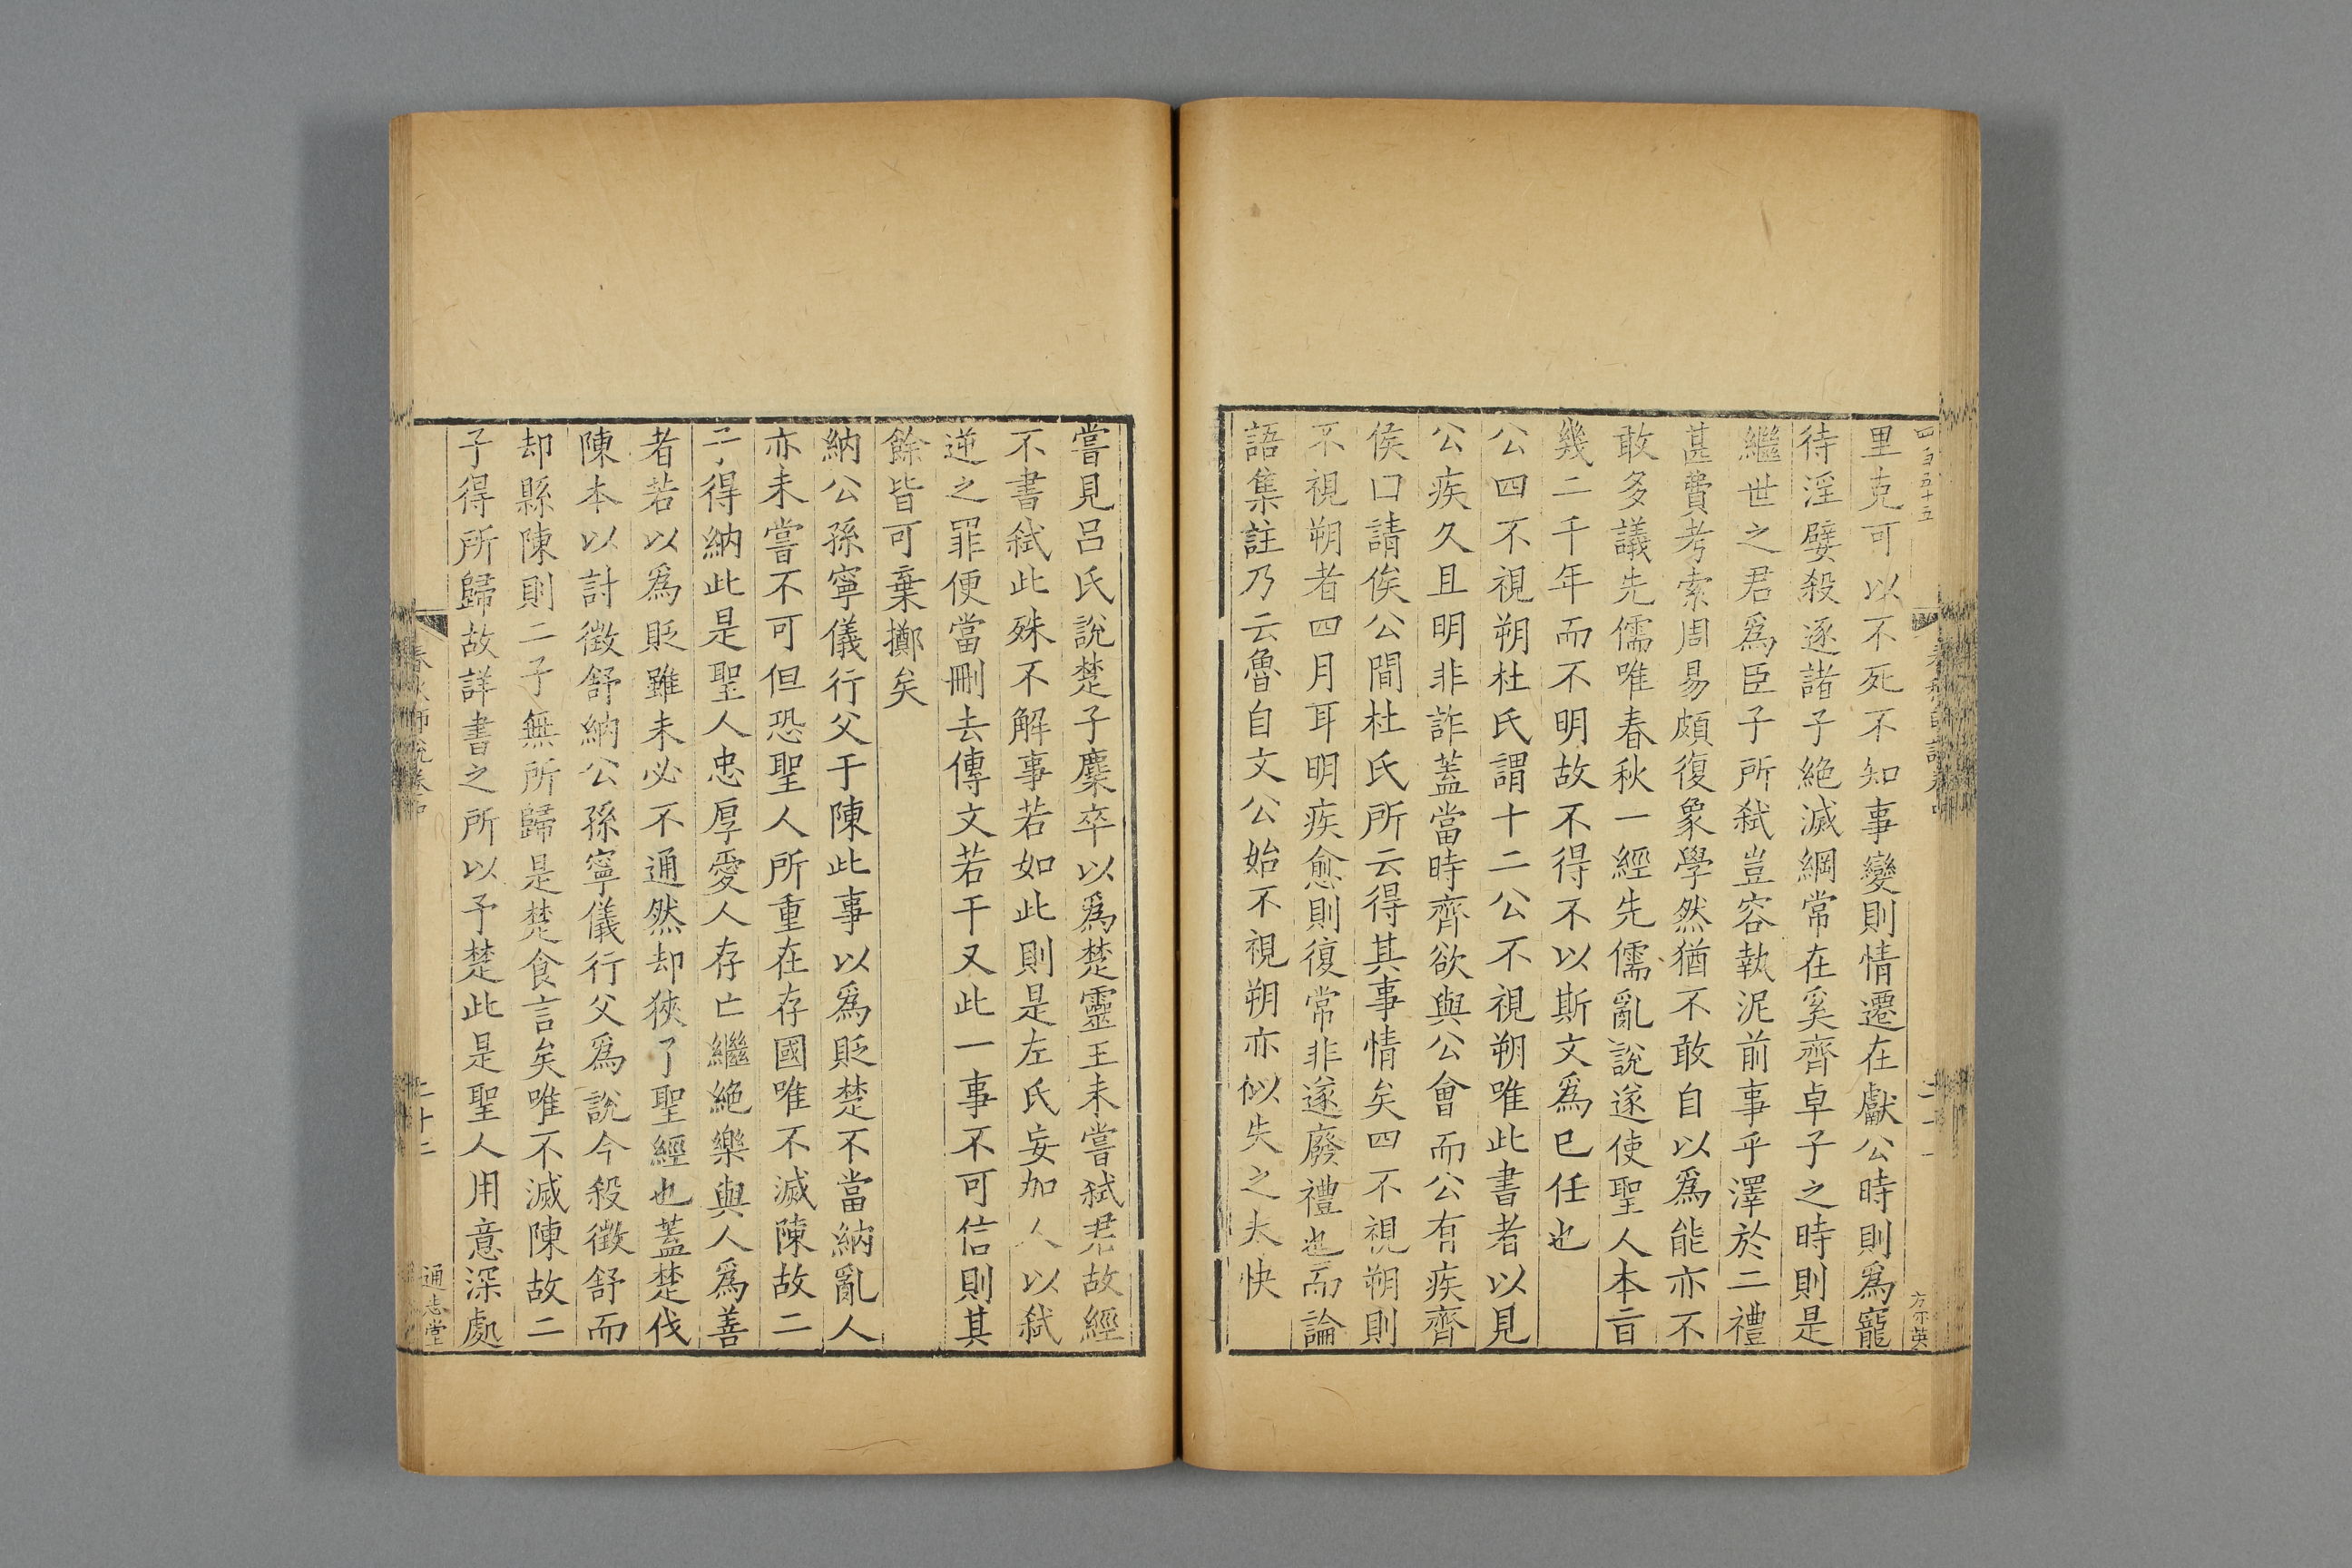 四百五十五
方尓英
里克可以不死不知事變則情遷在獻公時則爲寵
待淫嬖殺逐諸子絶滅綱常在奚齊卓子之時則是
繼世之君爲臣子所弑豈容執泥前事乎澤於二禮
甚費考索周易頗復象學然猶不敢自以爲能亦不
敢多議先儒唯春秋一經先儒亂説遂使聖人本㫖
幾二千年而不明故不得不以斯文爲已任也
公四不視朔杜氏謂十二公不視朔唯此書者以見
公疾久且明非詐蓋當時齊欲與公會而公有疾齊
侯口請俟公間杜氏所云得其事情矣四不視朔則
不視朔者四月耳明疾愈則復常非遂廢禮也而論
語集註乃云魯自文公始不視朔亦似失之太快
嘗見呂氏説楚子麇卒以爲楚靈王未嘗弑君故經
不書弑此殊不解事若如此則是左氏妄加人以弑
逆之罪便當刪去傳文若干又此一事不可信則其
餘皆可棄擲矣
納公孫寧儀行父于陳此事以爲貶楚不當納亂人
亦未嘗不可但恐聖人所重在存國唯不滅陳故二
子得納此是聖人忠厚愛人存亡繼絶樂與人爲善
者若以爲貶雖未必不通然却狹了聖經也蓋楚伐
陳本以討徵舒納公孫寧儀行父爲説今殺徵舒而
却縣陳則二子無所歸是楚食言矣唯不滅陳故二
子得所歸故詳書之所以予楚此是聖人用意深處
春秋師説卷中
二十二
通志堂